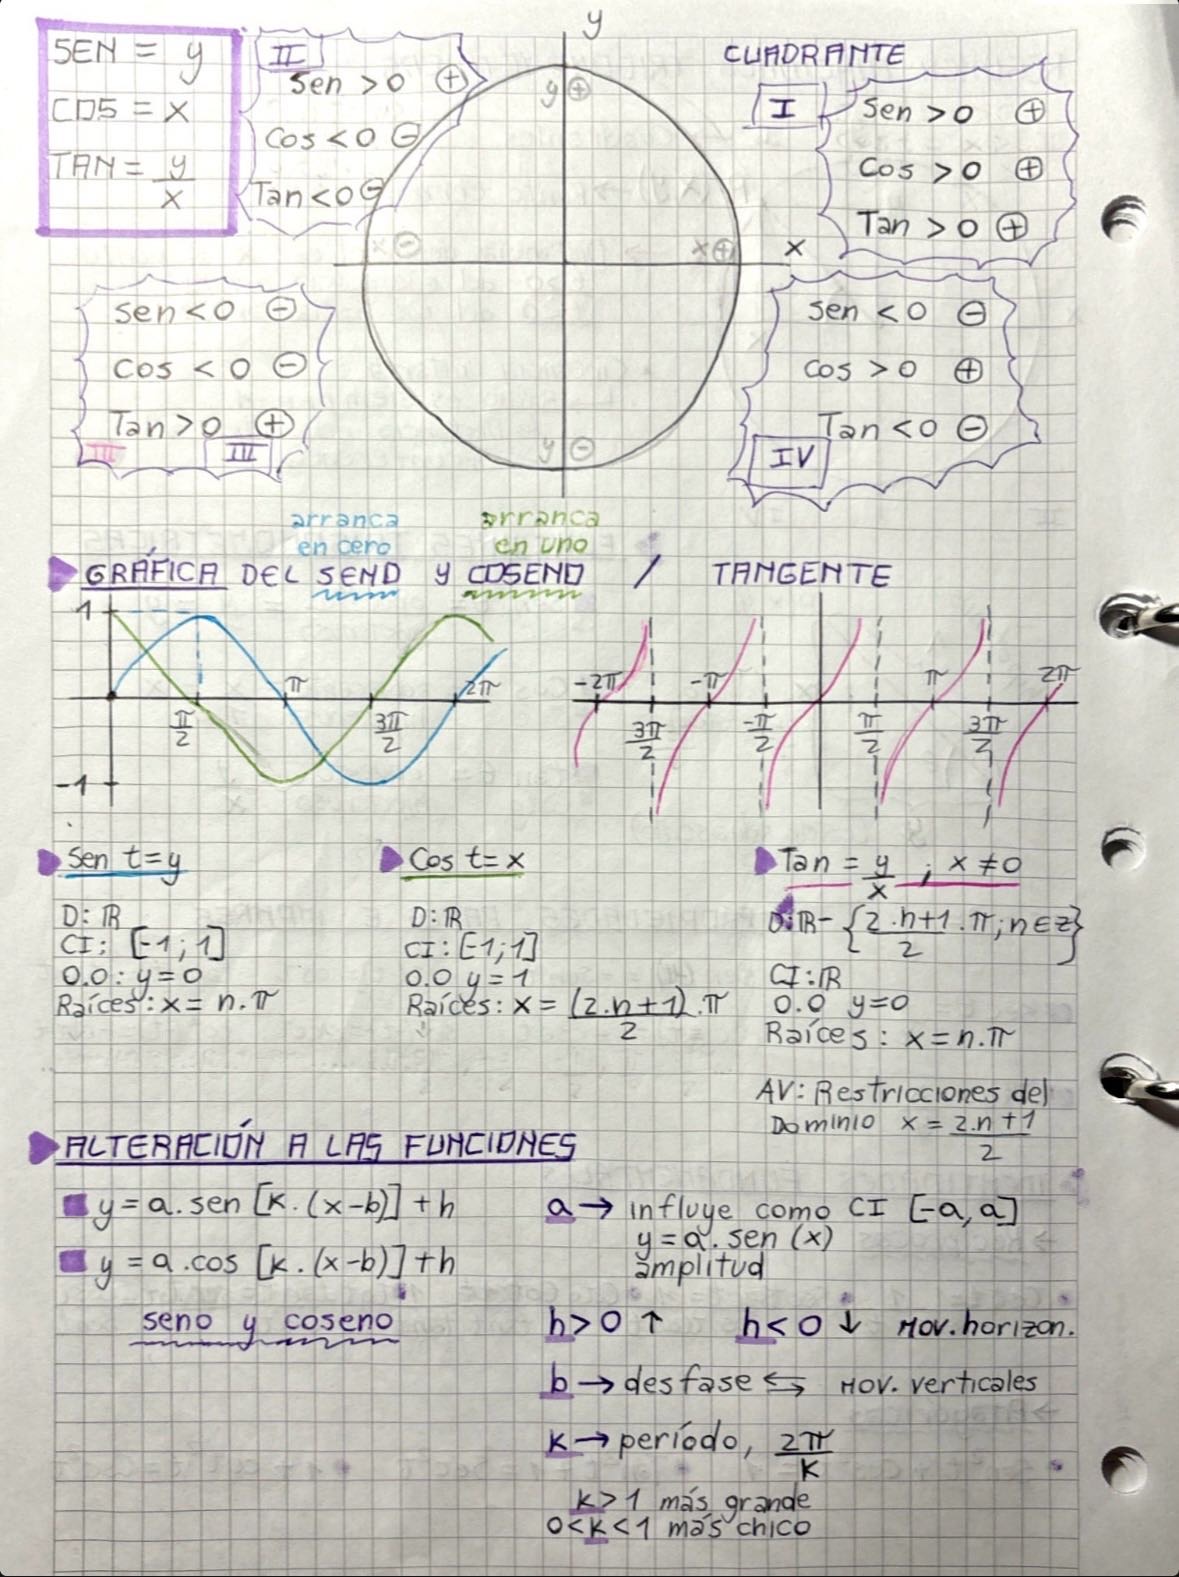 SEN = y
COS = x
TAN = y/x
II
Sen > 0 ⊕
Cos < 0 ⊖
Tan < 0 ⊖
y
y ⊕
x ⊖
x ⊕
x
y ⊖
CUADRANTE
I
Sen > 0 ⊕
Cos > 0 ⊕
Tan > 0 ⊕
sen < 0 ⊖
cos < 0 ⊖
Tan > 0 ⊕
III
III
sen < 0 ⊖
cos > 0 ⊕
Tan < 0 ⊖
IV
arranca
en cero
arranca
en uno
GRÁFICA DEL SENO y COSENO / TANGENTE
1
π/2
π
3π/2
2π
-1
-2π
3π/2
-π
-π/2
π/2
π
3π/2
2π
Sen t = y
D: ℝ
CI: [-1; 1]
O.O: y = 0
Raíces: x = n.π
Cos t = x
D: ℝ
CI: [-1; 1]
O.O y = 1
Raíces: x = (2.n+1)/2 .π
Tan = y/x ; x ≠ 0
D: ℝ - {2.n+1/2 .π; n ∈ z}
CI: ℝ
O.O y = 0
Raíces: x = n.π
AV: Restricciones del
Dominio x = 2.n+1/2
ALTERACIÓN A LAS FUNCIONES
y = a. sen [k. (x-b)] + h
y = a .cos [k. (x-b)] + h
seno y coseno
a → influye como CI [-a, a]
y = a. sen (x)
amplitud
h > 0 ↑ h < 0 ↓ Mov. horizon.
b → desfase ⇆ Mov. verticales
k → período, 2π/k
k > 1 más grande
0 < k < 1 más chico